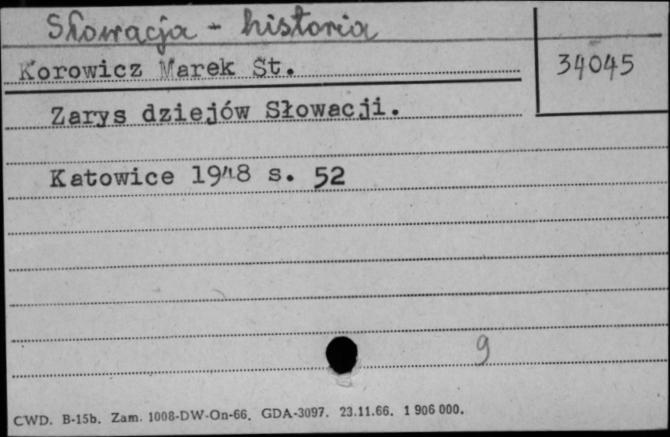 Słowacja - historia
Korowicz Marek St.
34045
Zarys dziejów Słowacji.
Katowice 1948 s. 52
9
CWD. B-15b. Zam. 1008-DW-On-66. GDA-3097. 23.11.66. 1 906 000.